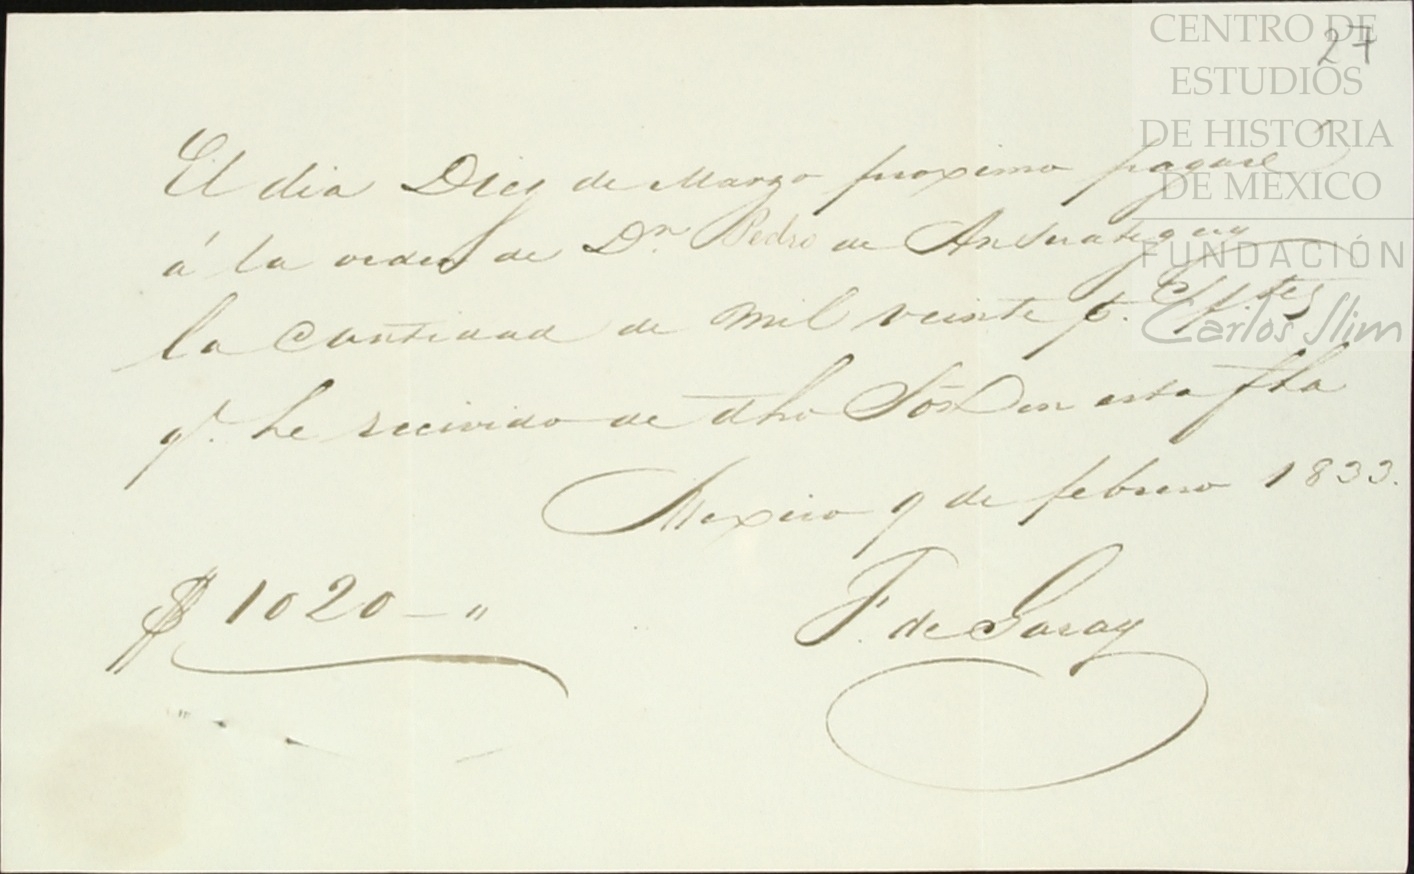 CENTRO DE
ESTUDIOS
DE HISTORIA
DE MEXICO
FUNDACIÓN
Carlos Slim
27
El dia Diez de Marzo proximo pagaré
á la orden de Dn. Pedro de
la cantidad de mil veinte p.
q.e he recivido de dho Sör en esta fha
Mexico 9 de febrero 1833.
$ 1020 — "
F. de Garay